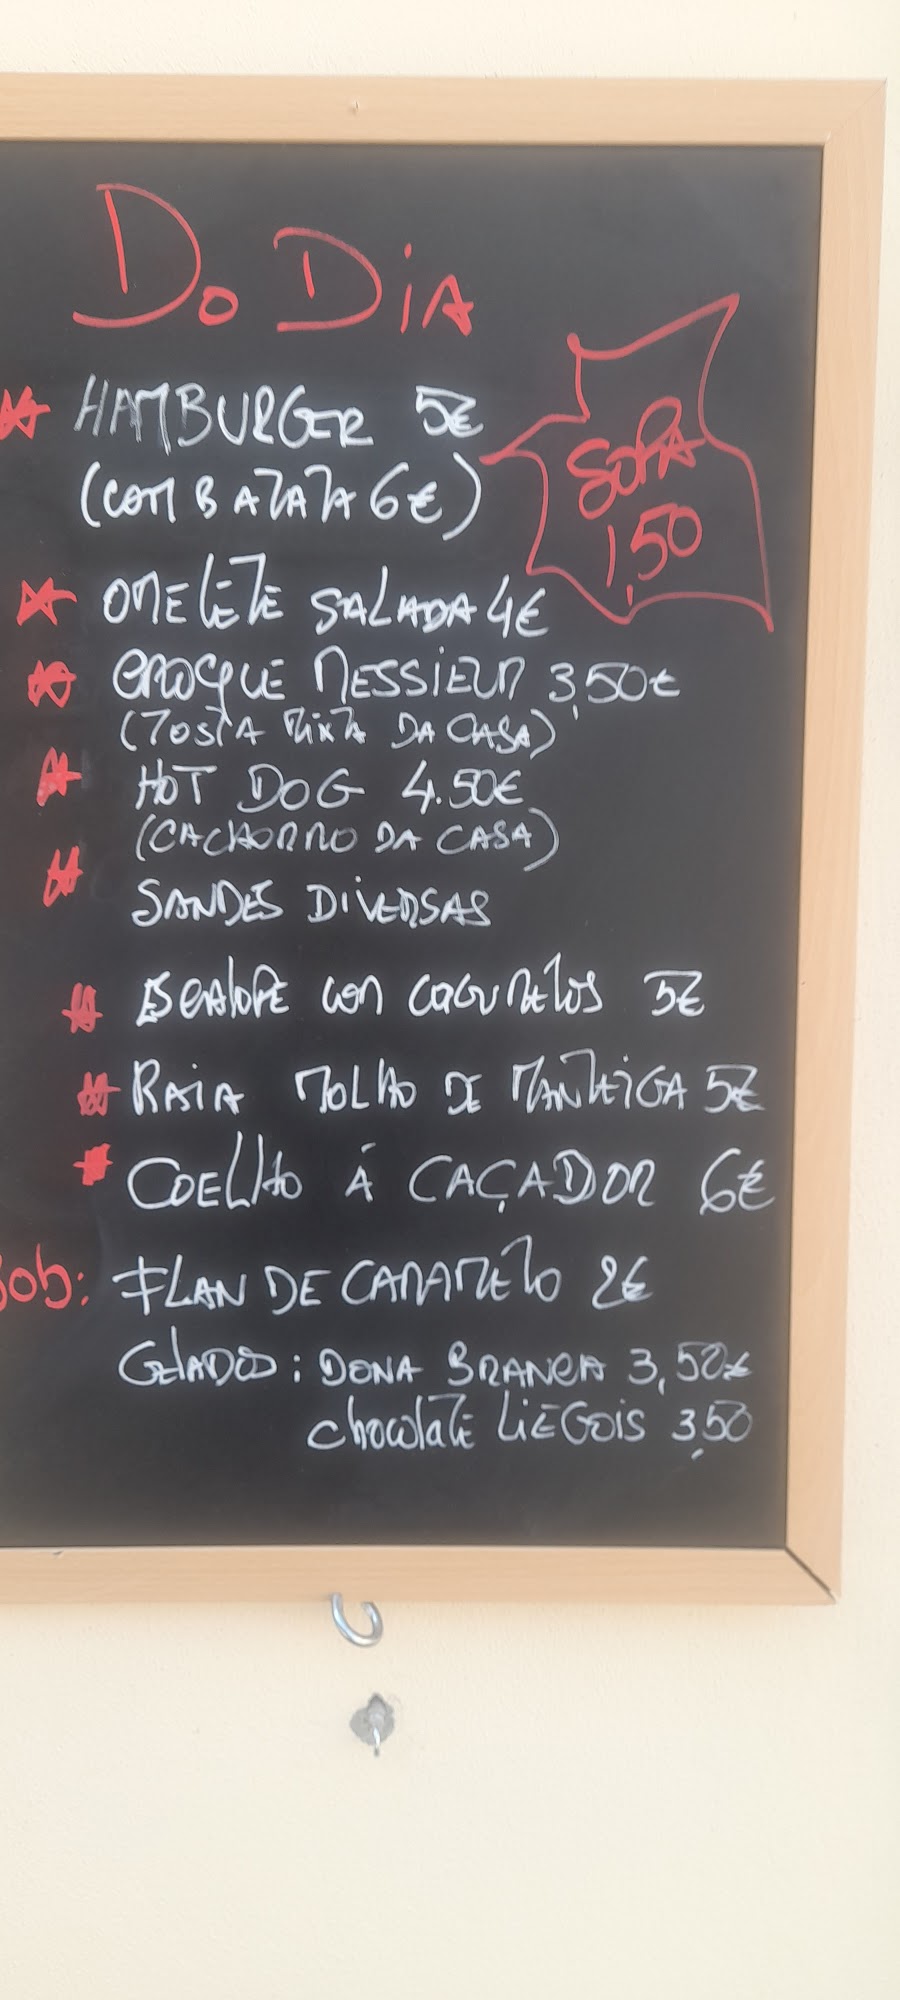 Do Dia
HAMBURGER 5€
(COM BATATA 6€)
SOPA
1,50
OMELETE SALADA 4€
CROQUE MESSIEUR 3,50€
(TOSTA MIXTA DA CASA)
HOT DOG 4.50€
(CACHORRO DA CASA)
SANDES DIVERSAS
ESCALOPE COM COGUMELOS 5€
RAIA MOLHO DE MANTEIGA 5€
COELHO Á CAÇADOR 6€
Sob: FLAN DE CARAMELO 2€
GELADOS: DONA BRANCA 3,50€
chocolate LIÉGOIS 3,50